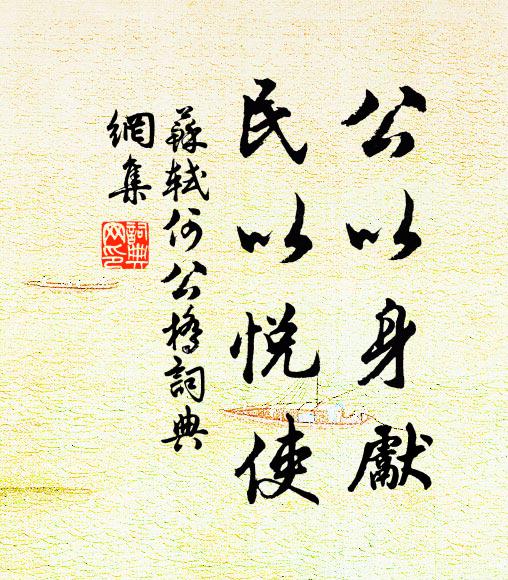 公以身獻
民以悅使
蘇軾何公橋詞典
網集
詞典
网印